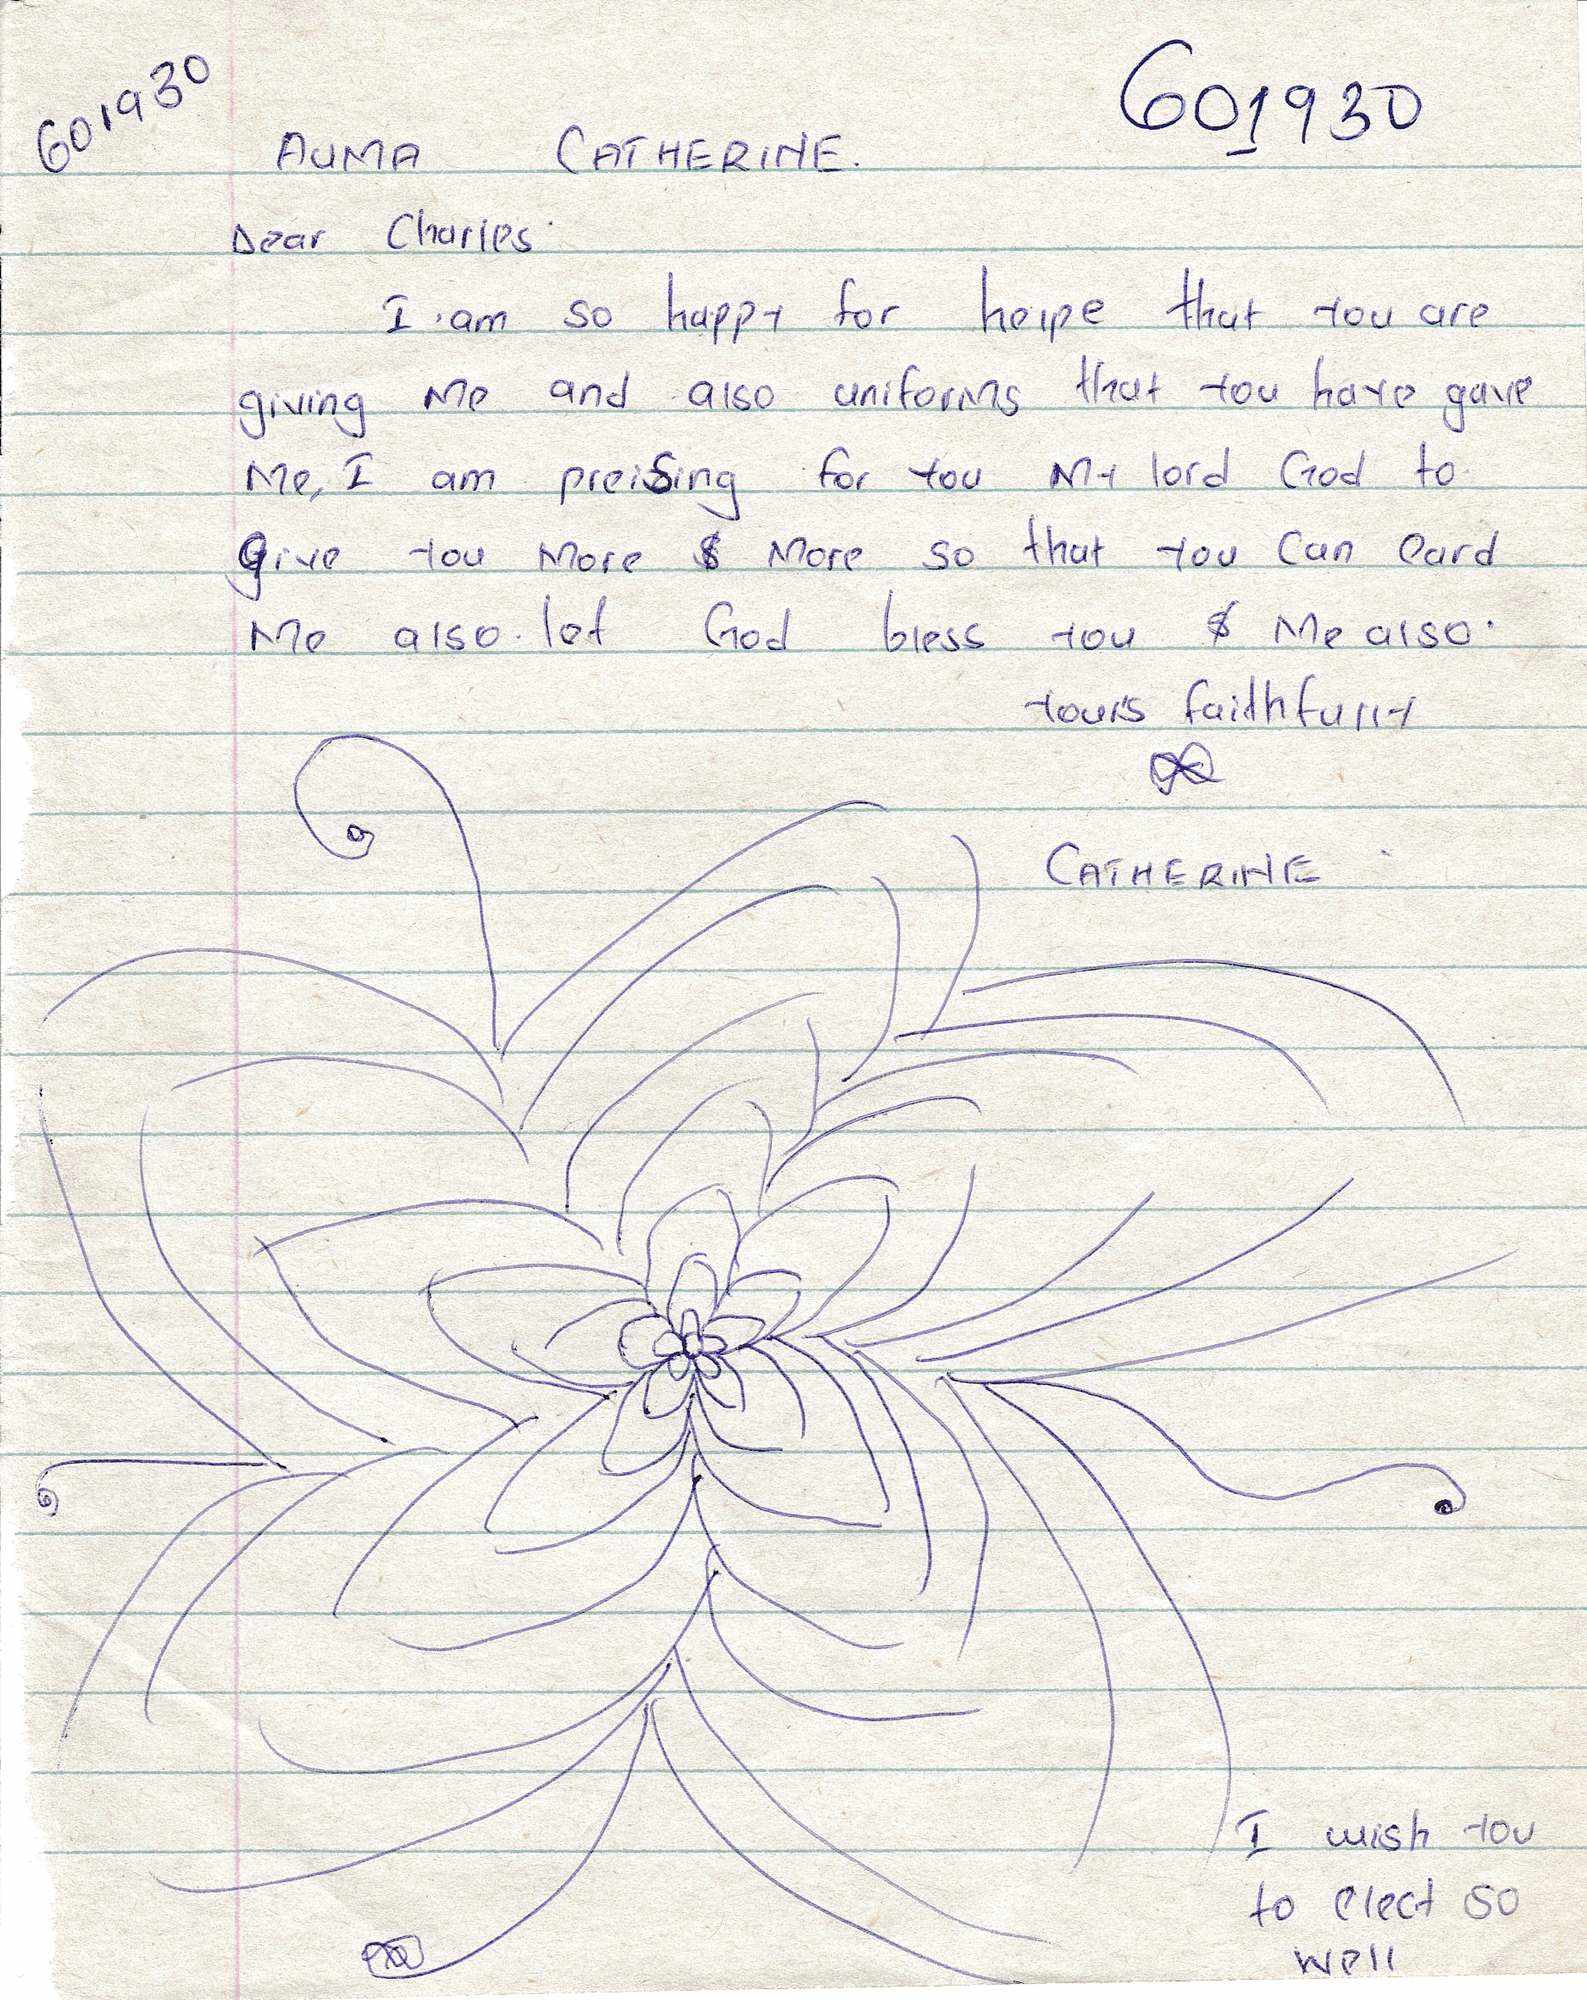 601930
601930
AUMA CATHERINE.
Dear Charles.
I am so happy for helpe that you are
giving me and also uniforms that you have gave
Me, I am preising for you My lord God to
give you more & more so that you can eard
Me also. let God bless you & Me also.
yours faithfully
CATHERINE
I wish you
to elect so
well